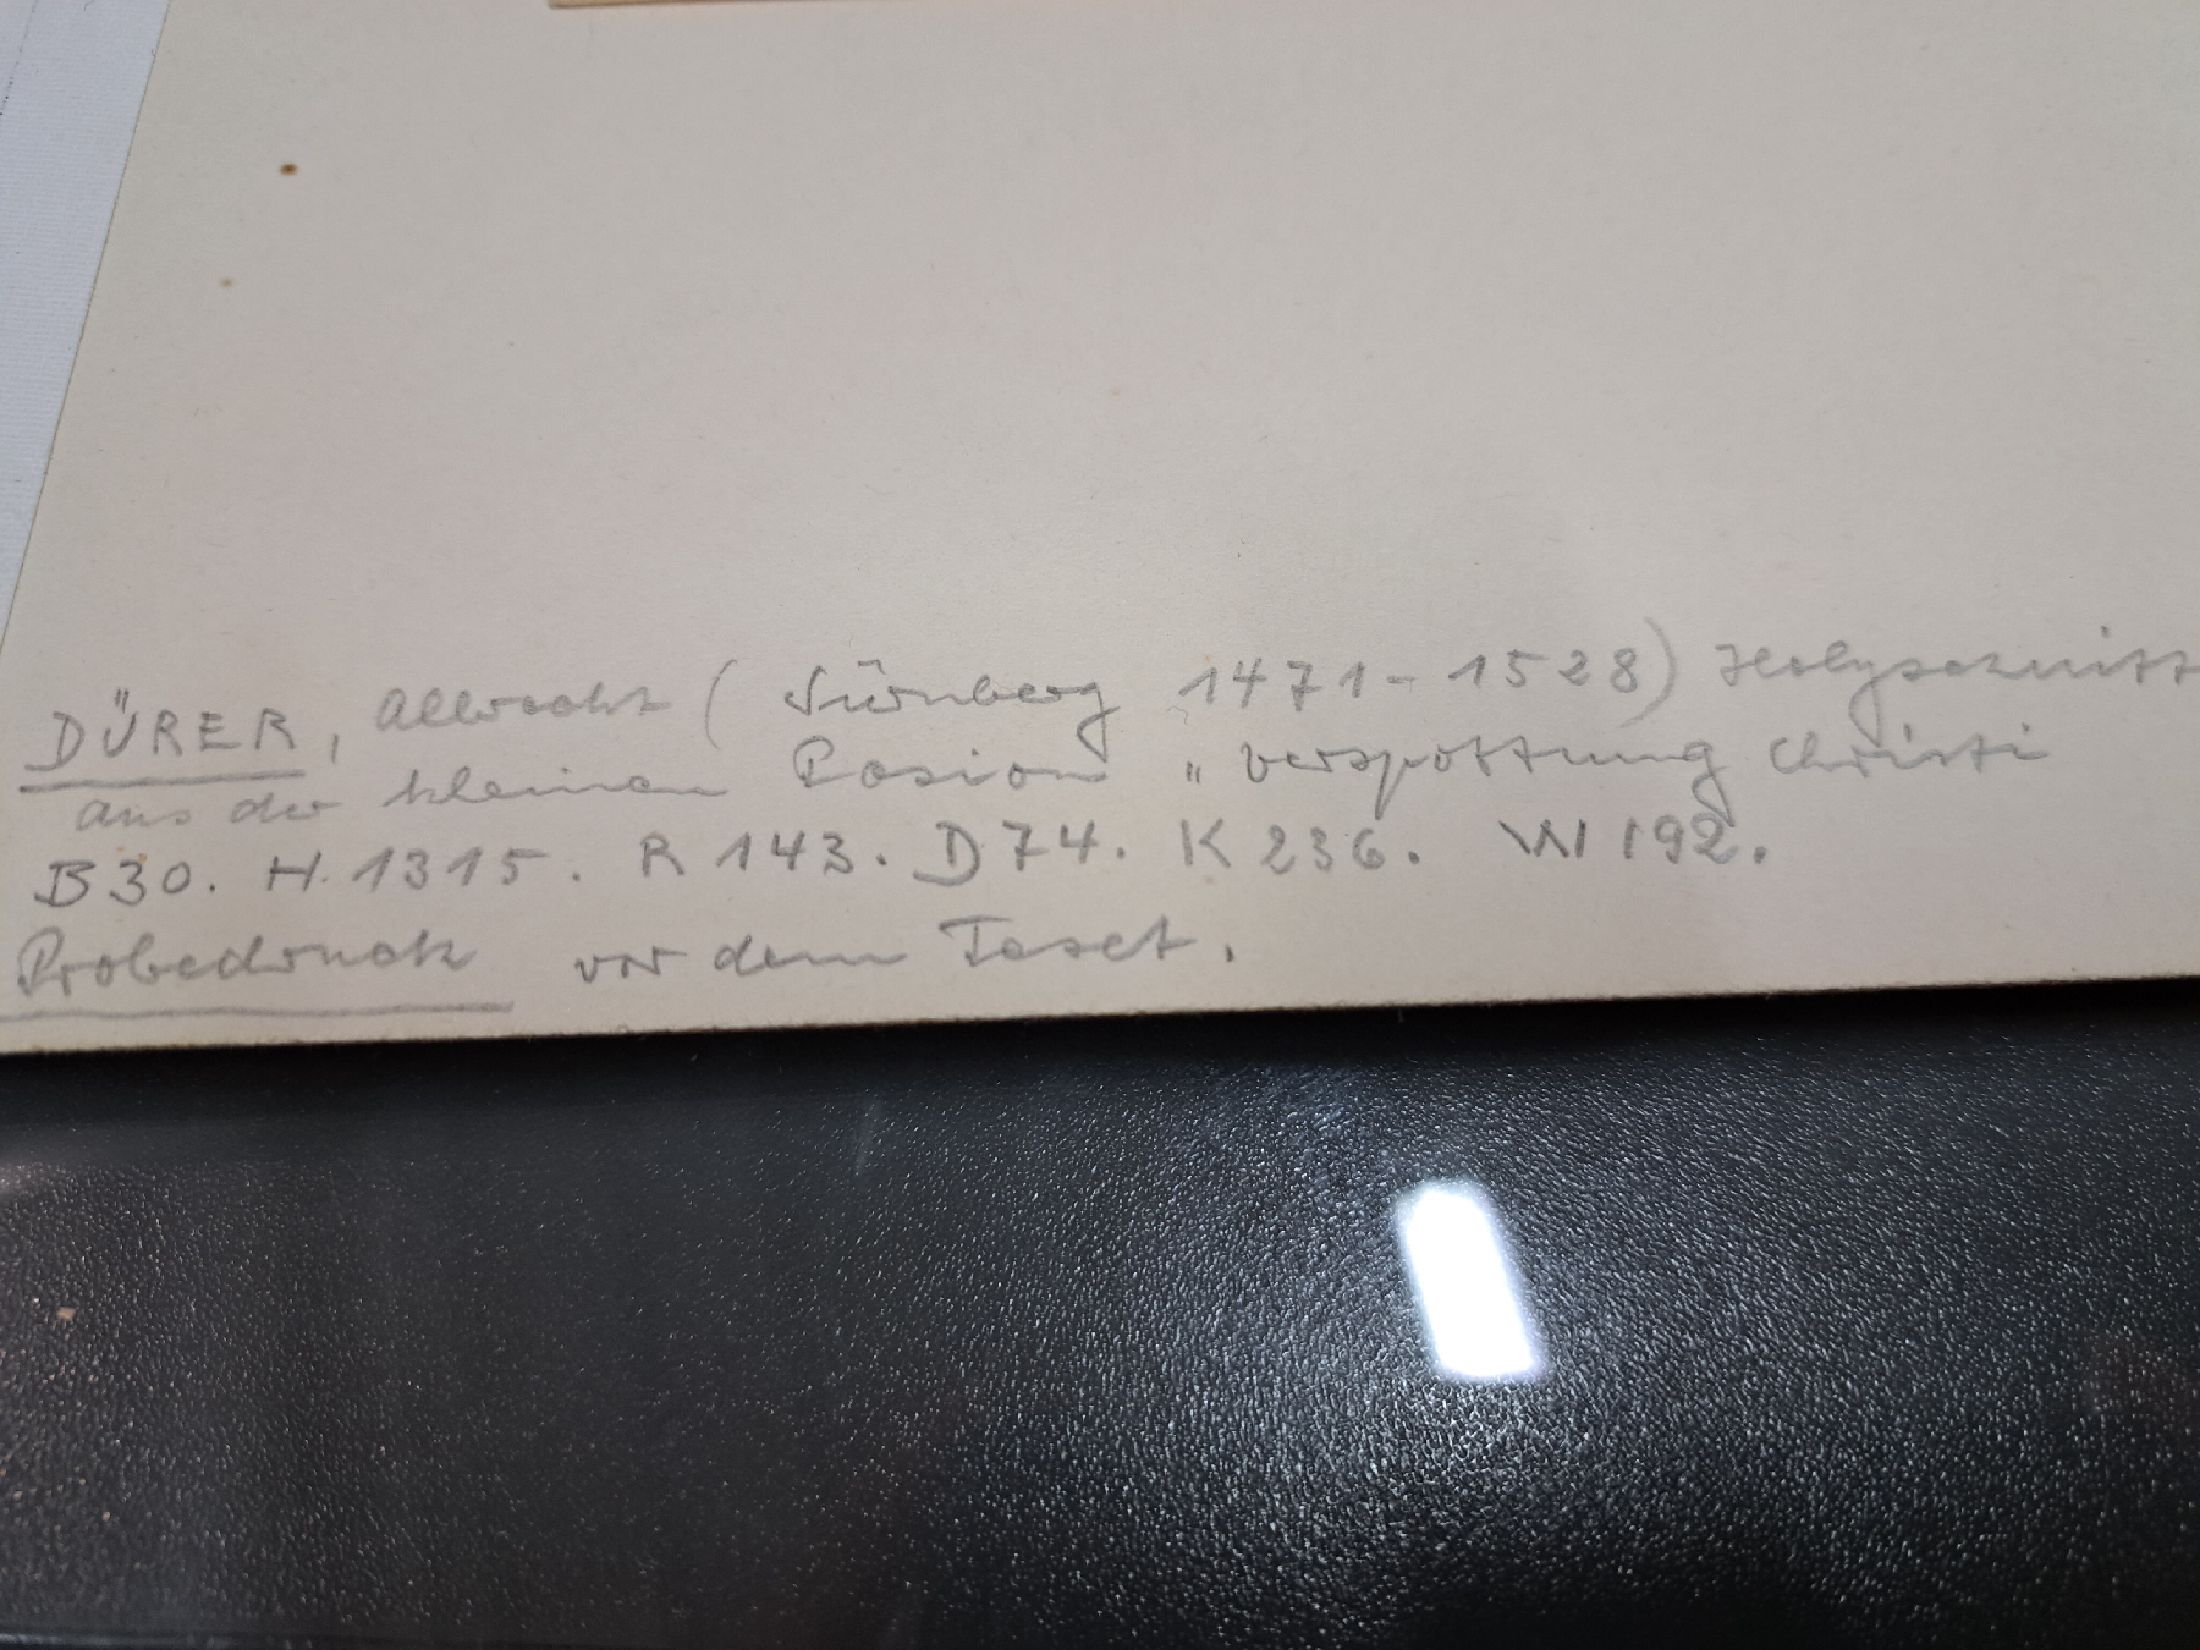 DÜRER, Albrecht ( Nürnberg 1471 - 1528) Holzschnitt
aus der kleinen Pasion „ Verspottung Christi
B30. H. 1315. R 143. D 74. K 236. W 192.
Probedruck vor dem Text.